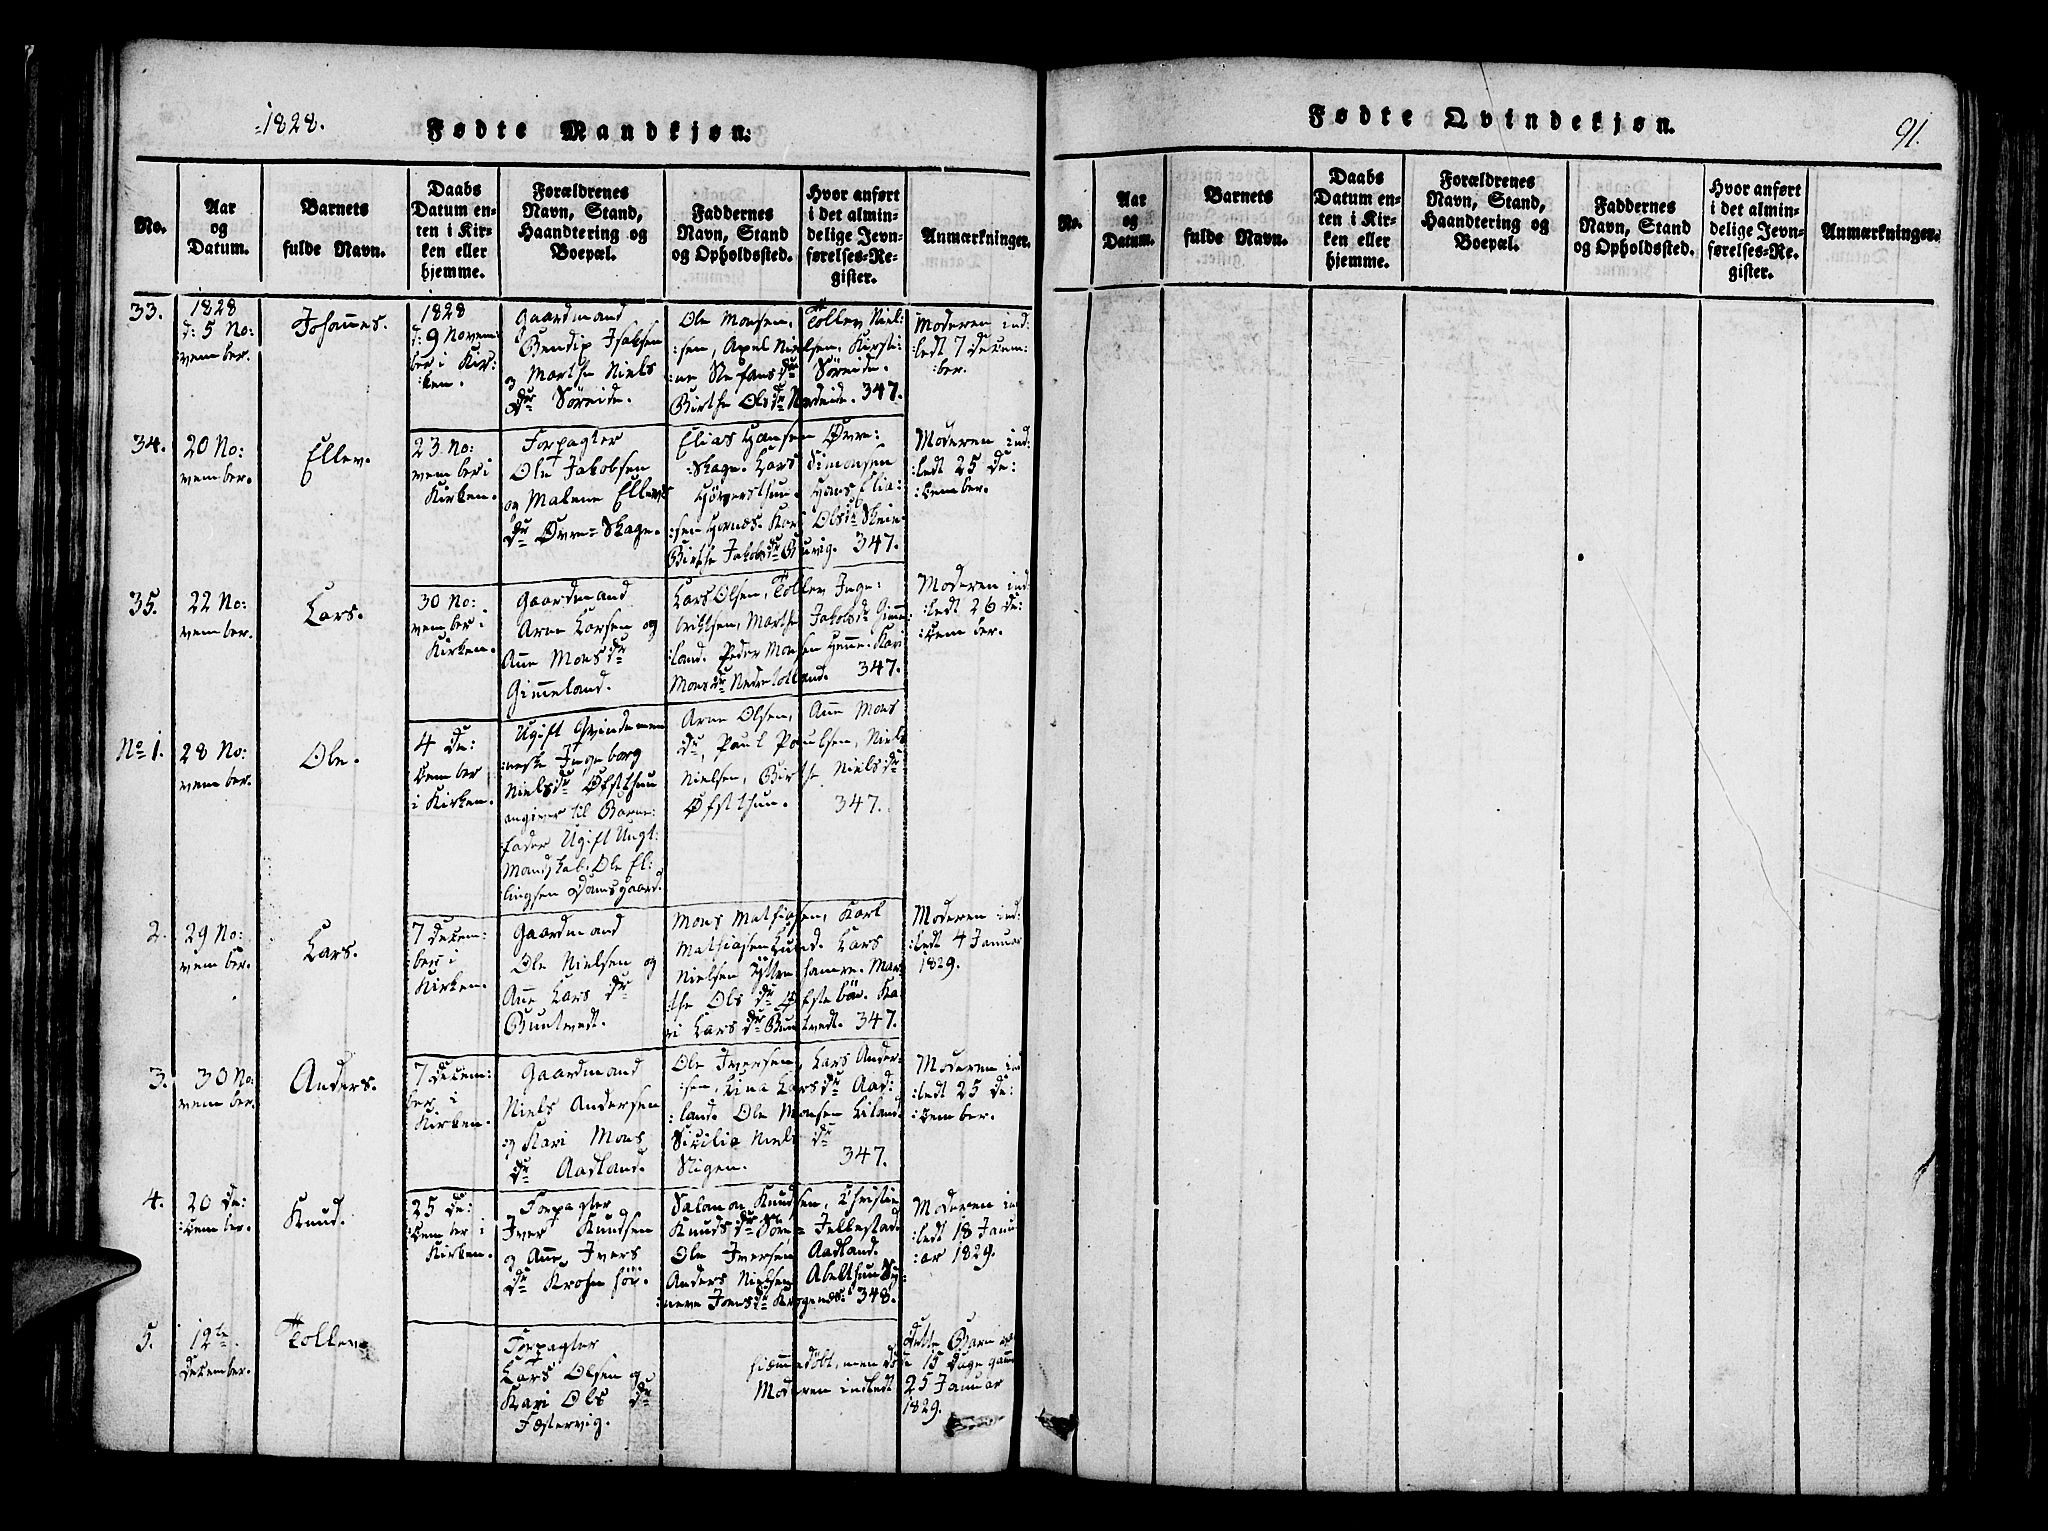 1828.
Fødte Mandkjøn.
No.
Aar
og
Datum.
Barnets
fulde Navn.
Daabs
Datum en-
ten i Kir-
ken eller
hjemme.
Forældrenes
Navn, Stand,
Haandtering og
Boepæl.
Faddernes
Navn, Stand
og Opholdssted.
Hvor anført
i det almin-
delige Jevn-
førelses-Re-
gister.
Anmærkninger.
33.
1828
d: 5 No:
vember.
Johannes.
1828
d: 9 Novem
ber i Kir:
:ken.
Gaardmand
Bendix Jsaksen
og Marthe Niels
dr Søreide.
Ole Monsen, Tollev Niel:
:sen, Axel Nielsen, Kirsti:
:ne Stefans dr Søreide.
Birthe Ols dr Nordeide. 347.
Moderen ind:
:ledt 7 Decem
ber.
34.
20 No:
vember.
Ellev.
23 No:
vember i
Kirken.
Forpagter
Ole Jakobsen
og Malene Ellevs
dr Øvre-Skage.
Elias Hansen Øvre:
:Skage. Lars Simonsen
Hans Elia:
:sen
Birthe Jakobs dr 347.
Moderen ind:
:ledt 25 De:
:cember.
35.
22 No:
vember.
Lars.
30 No:
vember i
Kirken.
Gaardmand
Arne Larsen og
Anne Mons dr
Gimeland.
Lars Olsen, Tollev Inge:
briktsen, Marthe Jakobs dr Gime
:land. Peder Monsen Kari
Mons dr 347.
Moderen ind:
:ledt 26 De:
:cember.
No 1.
28 No:
vember.
Ole.
4 De:
cember
i Kirken.
Ugift Qvindemen
neske Ingeborg
Niels dr Øfsthun
angiver til Barne:
fader Ugift Ungt:
Mandskab: Ole El:
lingsen Damsgaard.
Arne Olsen, Anne Mons
dr, Paul Paulsen, Niels
Nielsen, Birthe Niels dr
Øfsthun. 347.
2.
29 No:
vember.
Lars.
7 Decem:
ber i
Kirken.
Gaardmand
Ole Nielsen og
Anne Lars dr
Buntvedt.
Mons Mathiasen, Karl
Mathiasen Lund. Lars
Nielsen Yttre hamre. Mar
:the Ols dr Øfstebøe. Ka:
ri Lars dr Buntvedt. 347.
Moderen ind:
:ledt 4 Januar
1829.
3.
30 No:
vember.
Anders.
7 Decem:
ber i
Kirken.
Gaardmand
Niels Andersen
og Kari Mons
dr Aadland.
Ole Iversen, Lars Ander:
:sen, Lina Lars dr Aad:
:land. Ole Monsen
Sicilia Niels dr
Stigen. 347.
Moderen ind
:ledt 25 De:
:cember.
4.
20 De:
:cember.
Knud.
25 De:
:cember i
Kirken.
Forpagter
Iver Knudsen
og Anne Ivers
dr
Salamon Knudsen, Christie
Knuds dr Søre-Jellestad.
Ole Iversen Aadland.
Anders Nielsen
348.
Moderen ind
:ledt 18 Janu
:ar 1829.
5.
12te
December.
Tollev
Forpagter
Lars Olsen og
Kari Ols dr
Festervig.
hjemmedøbt, men død
Moderen indledt
Dette Barn er
15 Dage gam
25 Januar
1829.
Fødte Qvindekjøn.
91.
No.
Aar
og
Datum.
Barnets
fulde Navn.
Daabs
Datum en-
ten i Kir-
ken eller
hjemme.
Forældrenes
Navn, Stand,
Haandtering og
Boepæl.
Faddernes
Navn, Stand
og Opholdssted.
Hvor anført
i det almin-
delige Jevn-
førelses-Re-
gister.
Anmærkninger.